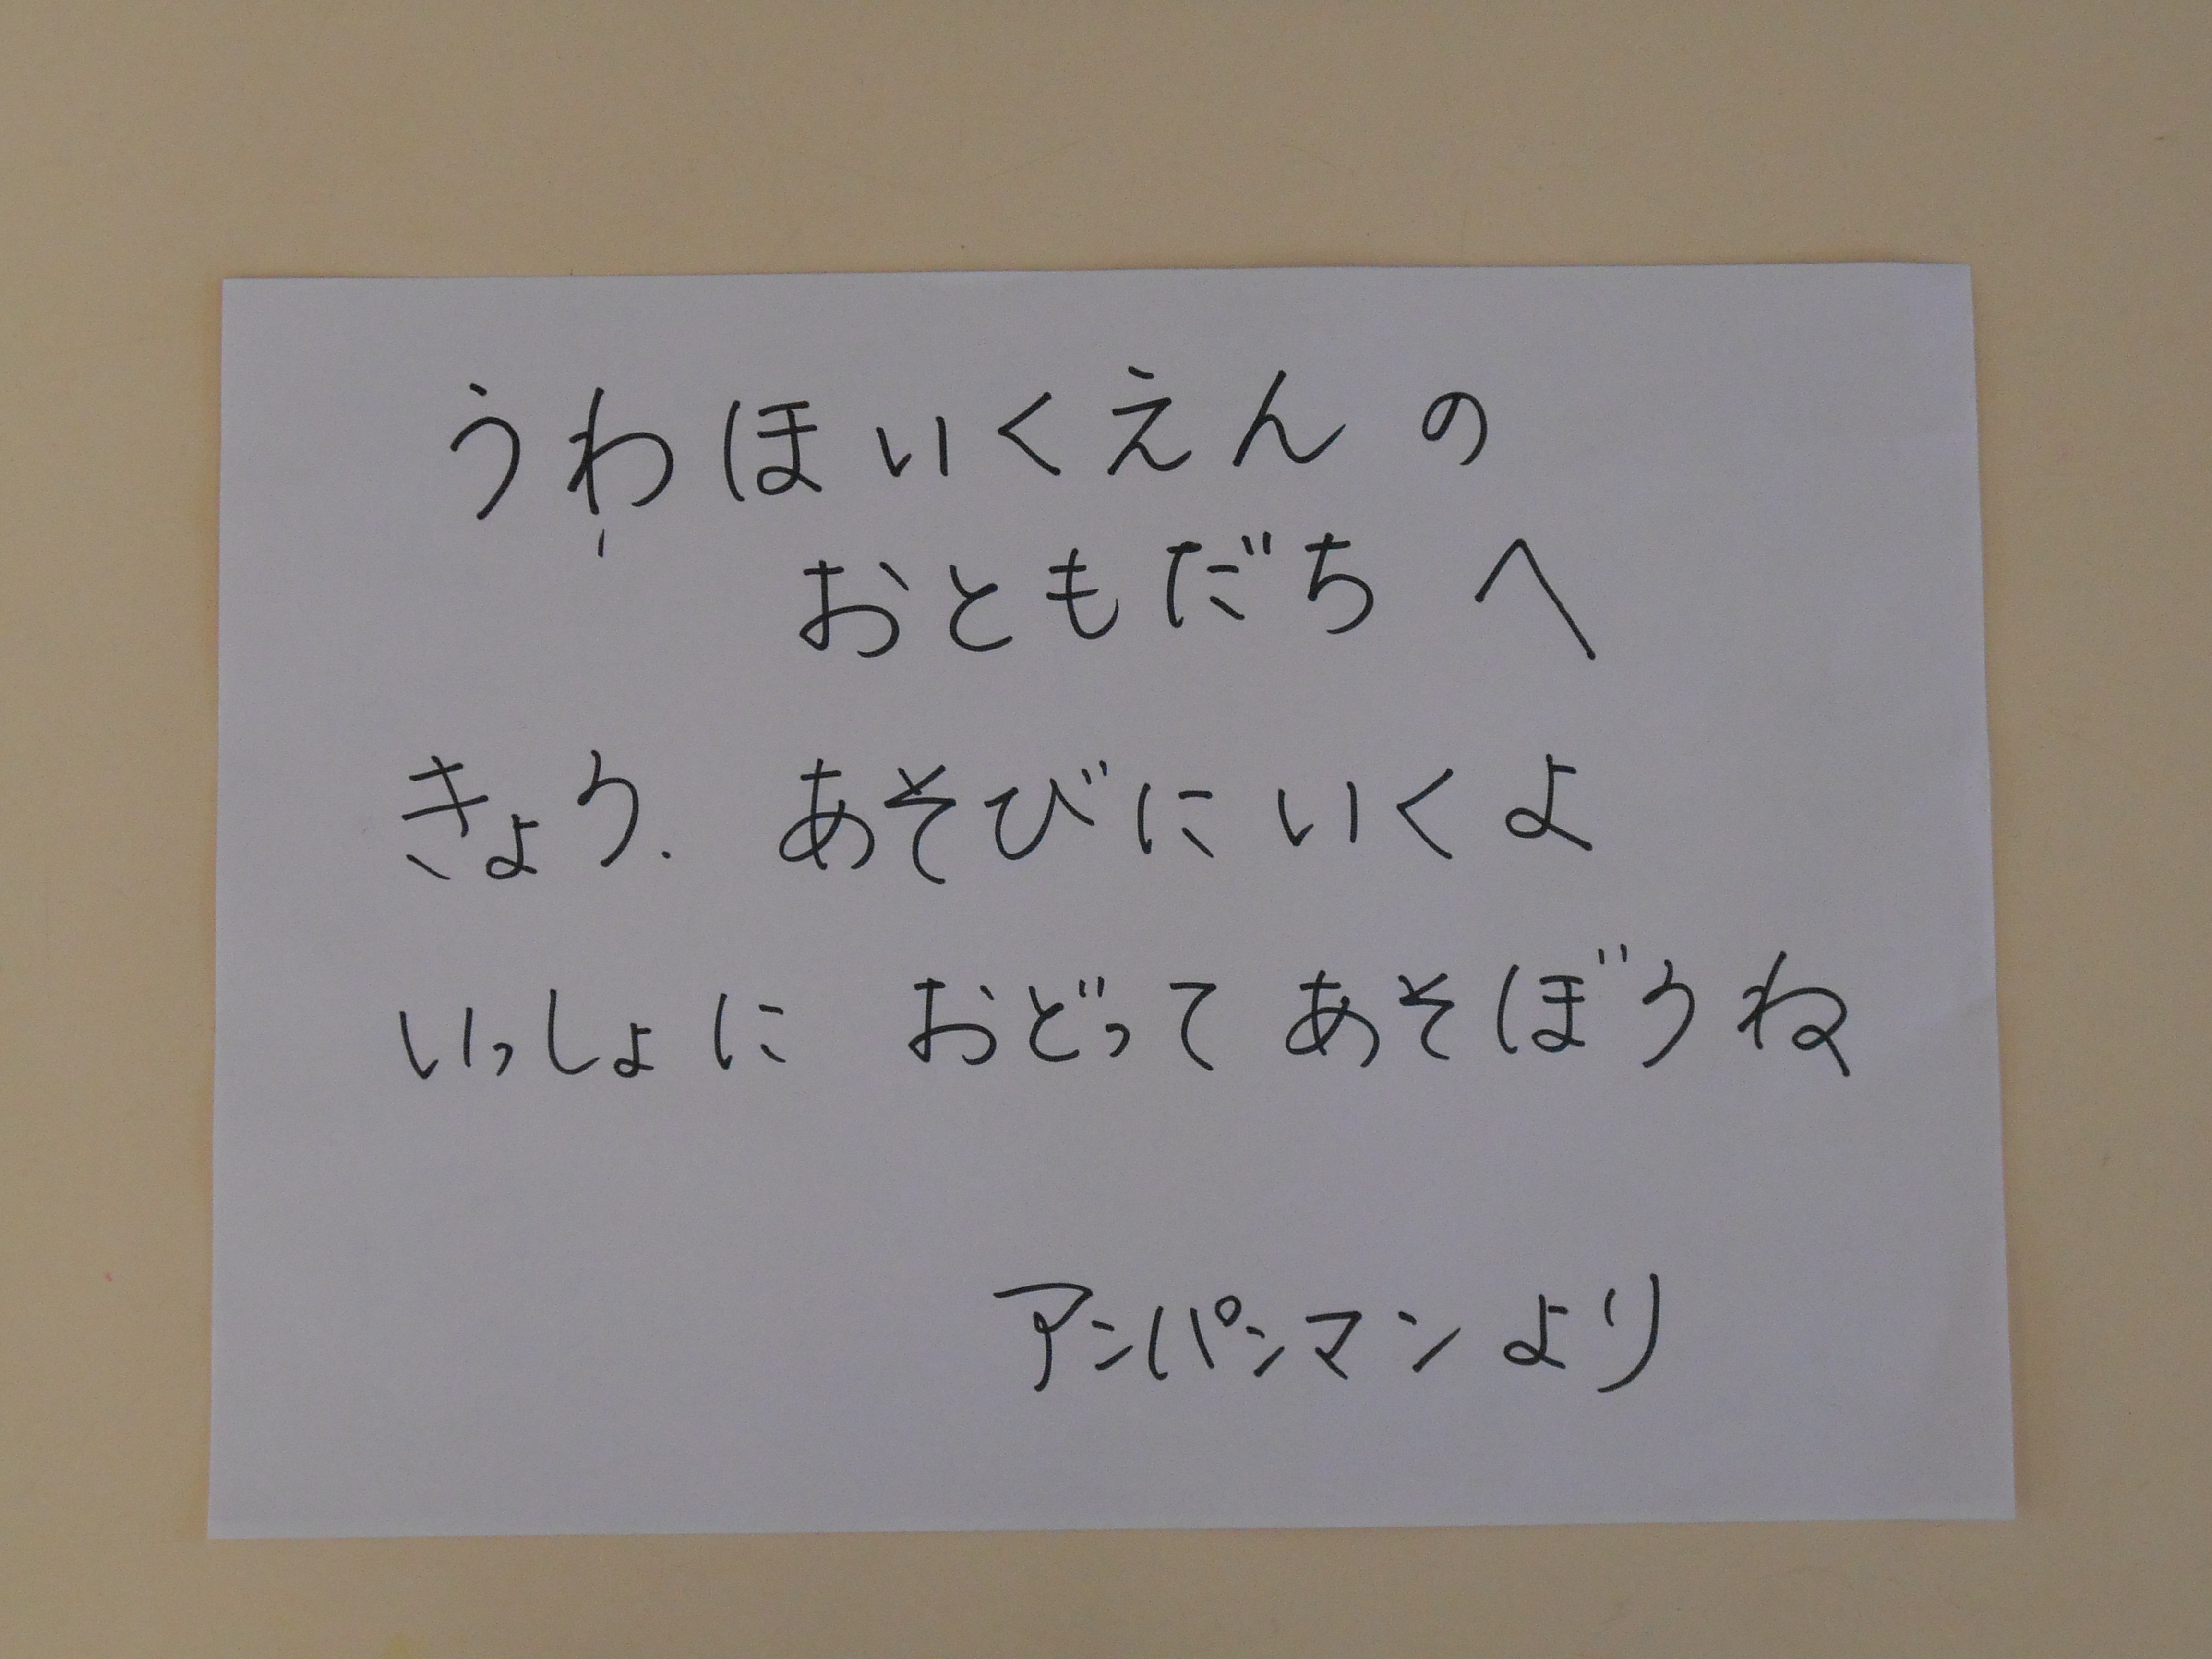 うわほいくえんの
おともだちへ
きょう.あそびにいくよ
いっしょに おどって あそぼうね
アンパンマンより